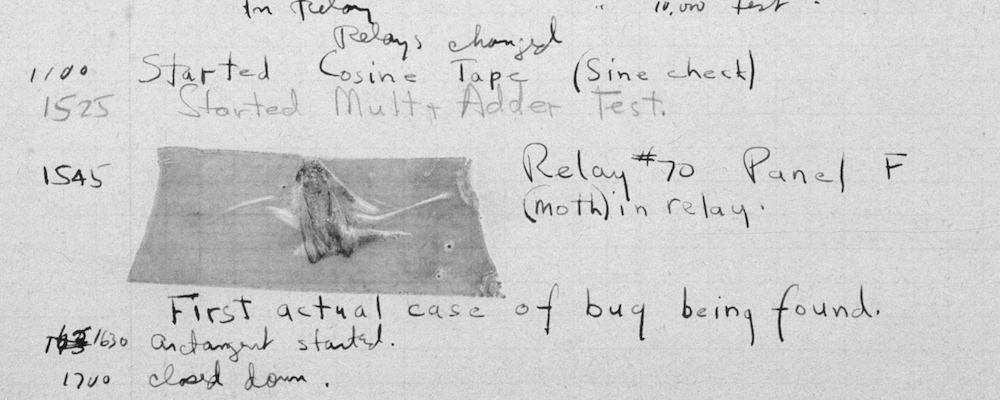 In Relay " 10,000 test .
Relays changed
1100 Started Cosine Tape (Sine check)
1525 Started Mult + Adder Test.
1545 Relay #70 Panel F
(moth) in relay.
First actual case of bug being found.
1630 arctangent started.
1700 closed down .